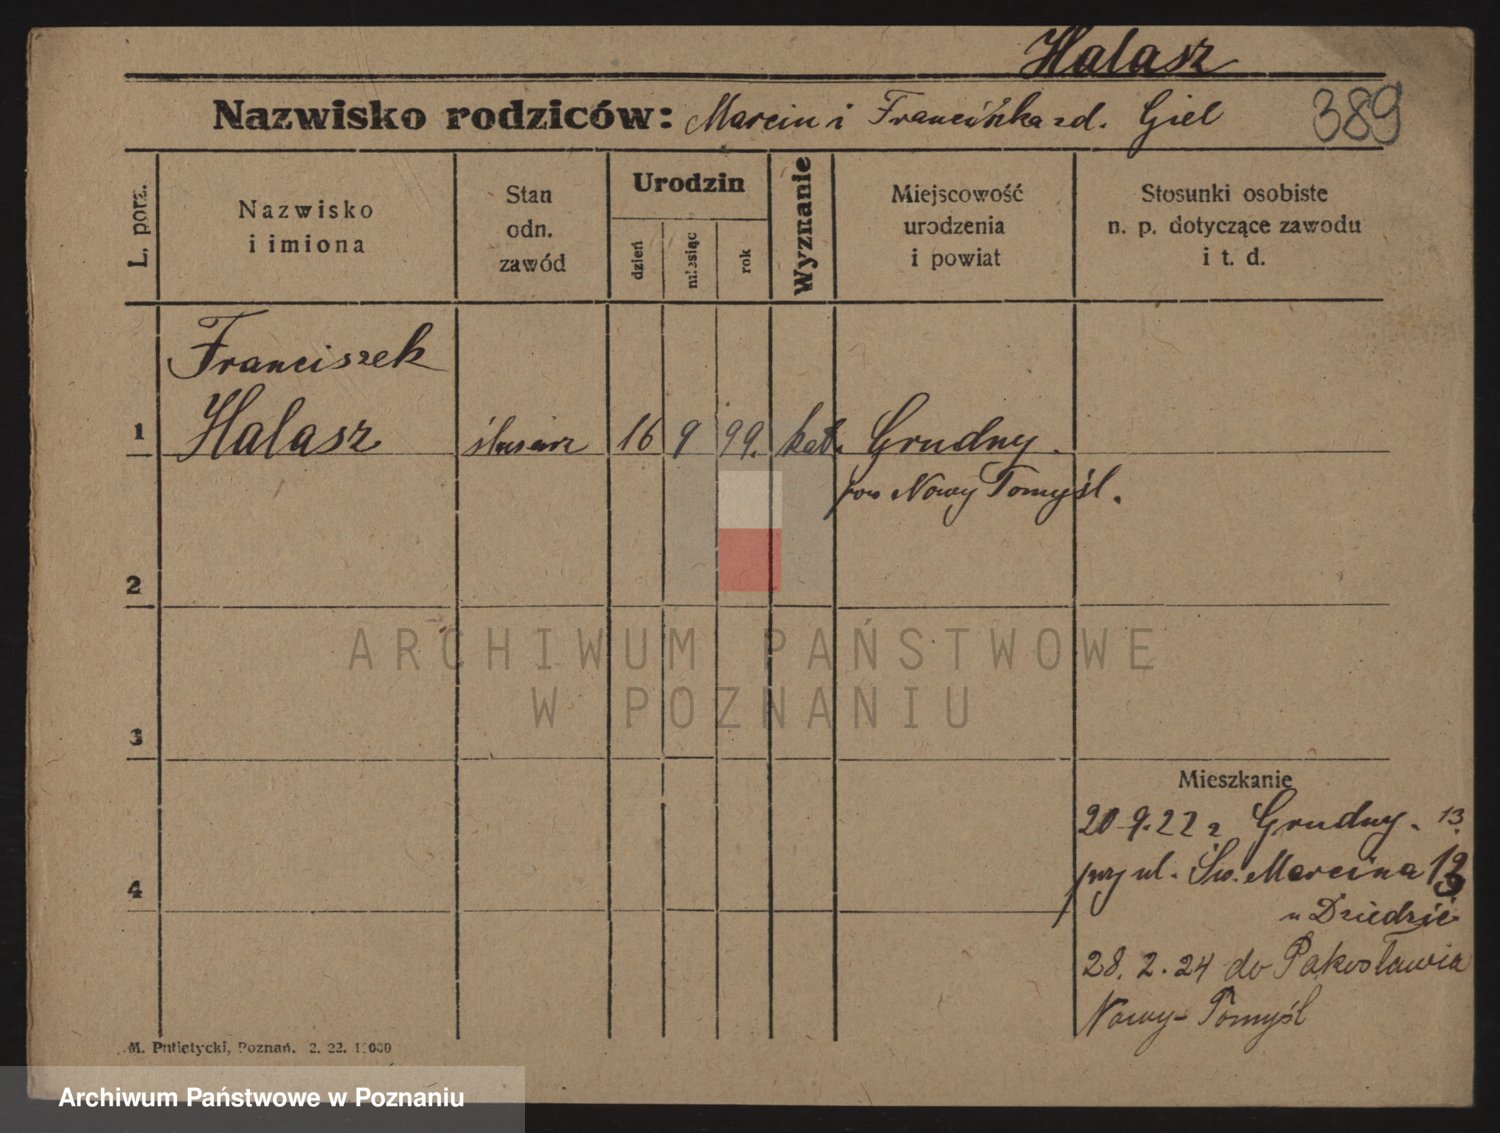 Halasz
Nazwisko rodziców: Marcin i Franciszka zd. Giel
389
L. porz.
Nazwisko
i imiona
Stan
odn.
zawód
Urodzin
dzień
miesiąc
rok
Wyznanie
Miejscowość
urodzenia
i powiat
Stosunki osobiste
n. p. dotyczące zawodu
i t. d.
Franciszek
1 Halasz ślusarz 16 9 99. kat. Grudny.
pow Nowy Tomyśl.
2
ARCHIWUM PAŃSTWOWE
W POZNANIU
3
Mieszkanie
20.9.22 z Grudny. 13.
4 przy ul. Św. Marcina 13
u Dziedzic
28. 2. 24 do Pakosławia
Nowy-Tomyśl
M. Putiatycki, Poznań. 2. 22.
Archiwum Państwowe w Poznaniu